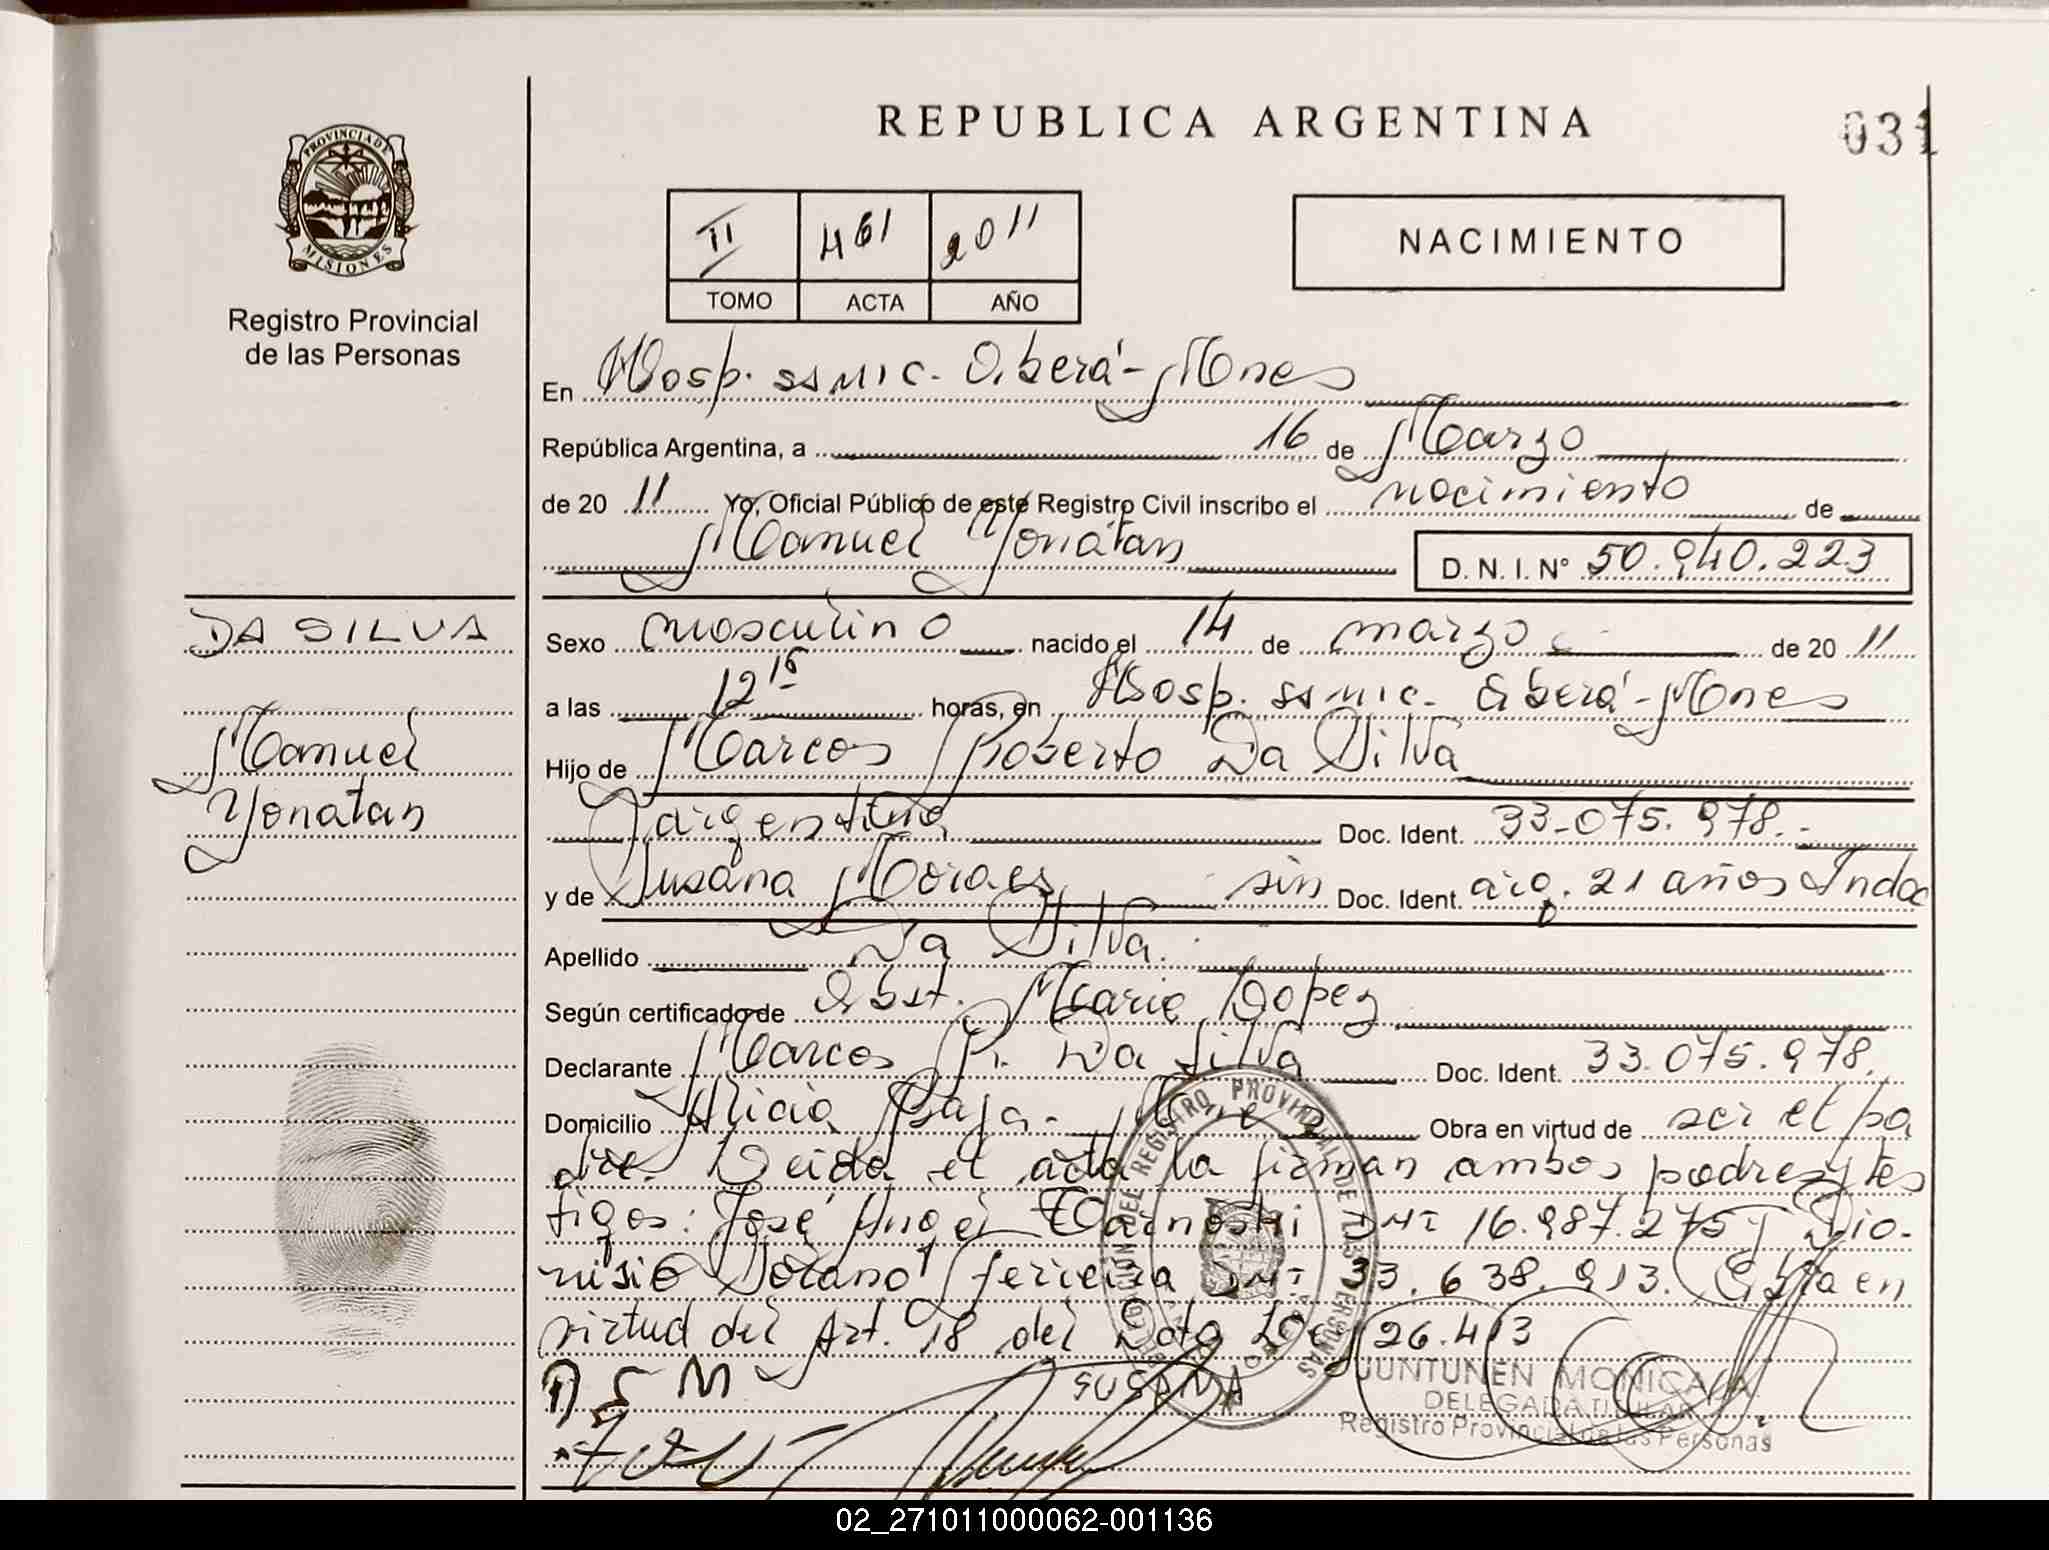 REPUBLICA ARGENTINA
031
PROVINCIA DE
MISIONES
Registro Provincial
de las Personas
II 461 2011
TOMO ACTA AÑO
NACIMIENTO
En Hosp. SSMIC. Oberá - Mnes
República Argentina, a 16 de Marzo
de 20 11 Yo, Oficial Público de este Registro Civil inscribo el nacimiento de
Manuel Yonatan D. N. I. N° 50.940.223
DA SILVA
Manuel
Yonatan
Sexo masculino nacido el 14 de marzo de 20 11
a las 12 15 horas, en Hosp. SSMIC. Oberá - Mnes
Hijo de Marcos Roberto Da Silva
argentino Doc. Ident. 33.075.978.-
y de Susana Moraes sin Doc. Ident. arg. 21 años Indoc
Apellido Da Silva.
Según certificado de Obst. Maria Lopez
Declarante Marcos R. Da Silva Doc. Ident. 33.075.978.
Domicilio Alicia Baja - Mnes Obra en virtud de ser el pa
dre. Leida el acta la firman ambos padres y tes
tigos: José Angel DNI 16.987.275 y Dio-
nisio Ferreira DNI 33.638.913. Esta en
virtud del Art. 18 del Ley 26.413
D S M SUSANA
REGISTRO PROVINCIAL DE LAS PERSONAS
JUNTUNEN MONICA A.
DELEGADA TITULAR
Registro Provincial de las Personas
02_271011000062-001136